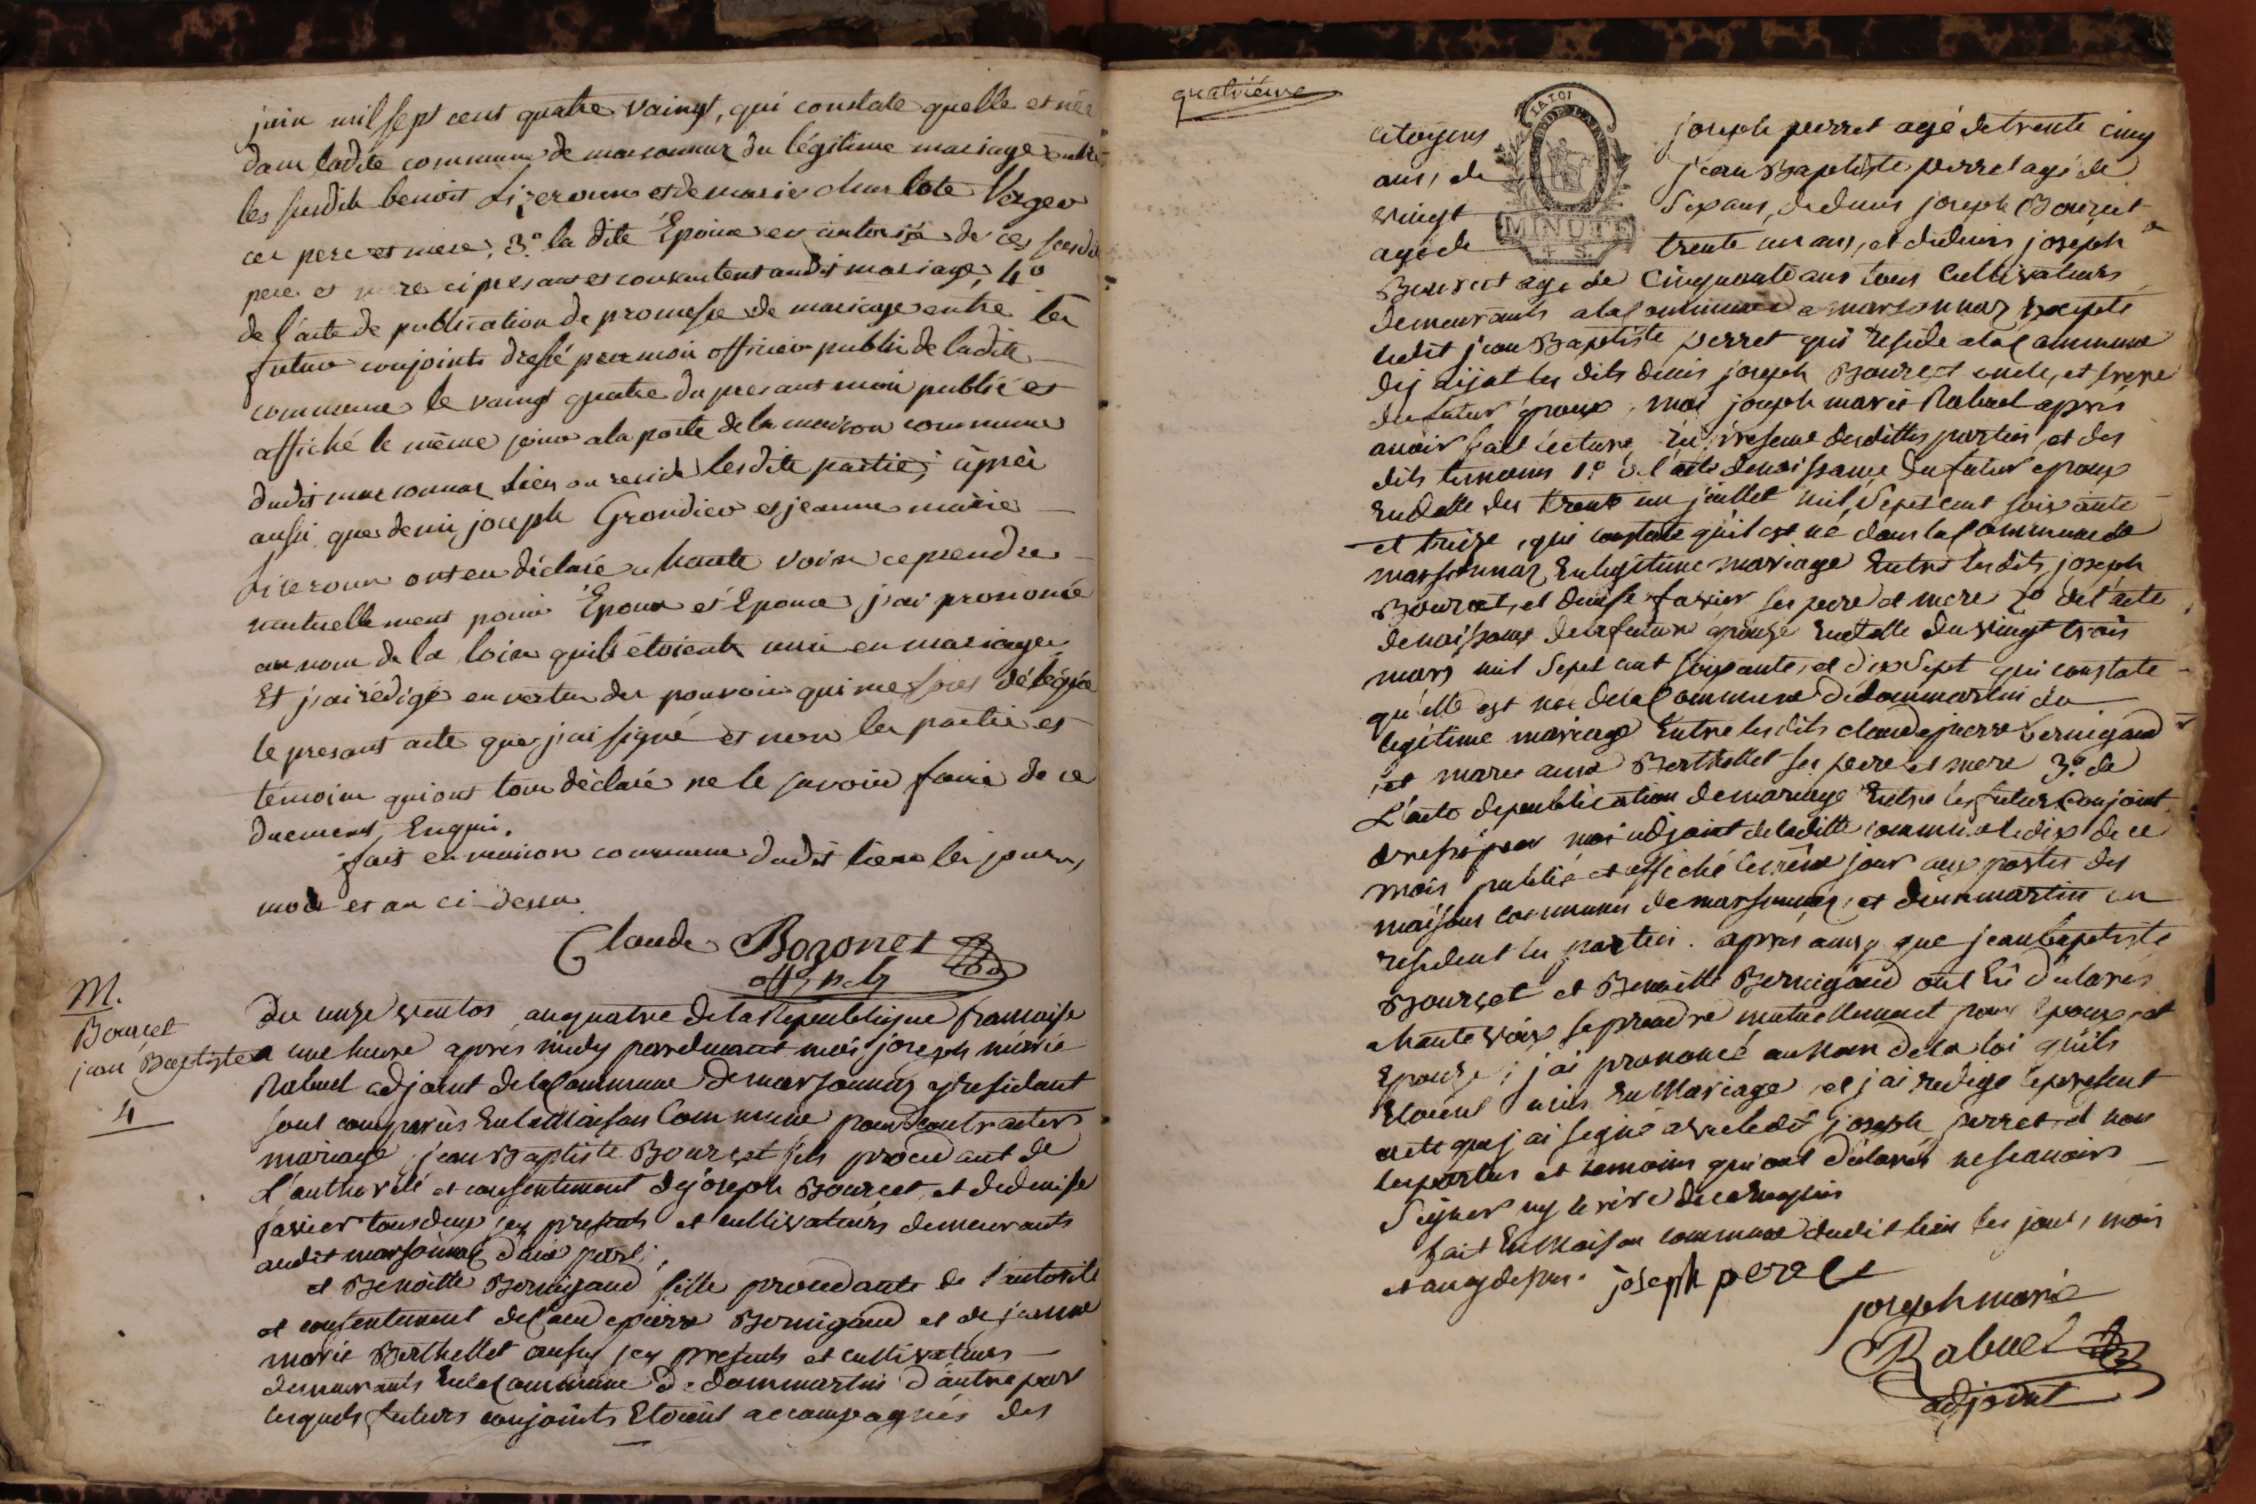 juin mil sept cent quatre vaingt, qui constate quelle est née
dans ladite commune de marsonnaz du légitime mariage entre
les susdit benoit Liseroun et de marie charlote Verger
ces pere et mere, 3.º la dite Epouse en autorisé de ces susdit
pere et mere ci presant et consentent audit mariage, 4º
de l'acte de publication de promesse de mariage entre les
futur conjoints dressé par moi officier public de ladite
commune le vaingt quatre du presant moi publié et
affiché le même jour a la porte de la maison commune
dudit marsonnaz lieu ou reside lesdite partie; après
aussi que denis joseph Grondier et jeanne marie
Liseroun ont eu déclaré a haute voix ce prendre
mutuellement pour Epoux et Epouse j'ai prononcé
au nom de la loix quils étoients unis en mariage
Et j'ai rédigé en vertu du pouvoir qui me sont délégué
le presant acte que j'ai signé et non les partie et
témoins qui ont tous déclaré ne le savoir faire de ce
duement Enquis.
fait en maison commune dudit lieu les jours,
mois et an ci-dessu
Claude Bozonet
off. pub.
M.
Bourcet
jean Baptiste
4
Du onze ventos, an quatre de la Republique francaise
a une heure après midy pardevant moi joseph marie
Rabuel adjoint de la Commune de marsonnaz y residant
sont comparus En la Maison Commune pour contracter
mariage, jean Baptiste Bourcet fils procedant de
L'authorité et consentement de joseph Bourcet et de denise
favier tous deux icy presents et cultivateurs demeurants
audit marsonnaz d'une part;
et Benoitte Bernigaud fille procedante de l'autorité
et consentement de Claude pierre Bernigaud et de jeanne
marie Berthellet aussy icy presents et cultivateurs
demeurants En la Commune de dommartin d'autre part
lesquels futurs conjoints Etoient accompagnés des
quatrième
MINUTE
citoyens joseph perret agé de trente cinq
ans, de jean Baptiste perret agé de
vingt Six ans, de denis joseph Bourcet
agé de trente un ans, et de denis joseph
Bourcet age de Cinquante ans tous Cultivateurs
demeurants a la Commune de marsonnaz Excepté
ledit jean Baptiste perret qui reside a la Commune
les dits denis joseph Bourcet oncle, et frere
du futur époux, moi joseph marie Rabuel après
avoir fait lecture, En présence desdittes parties, et des
dits temoins 1.º de l'acte de naissance du futur époux
En datte du trente un juillet mil Sept cent soixante
et treize, qui constate qu'il est né dans la Commune de
marsonnaz En legitime mariage Entre les dits joseph
Bourcet, et denise favier ses pere et mere 2º de l'acte
de naissance de la future épouze En datte du vingt trois
mars mil Sept cent soixante, et dix Sept qui constate
qu'elle est née de la Commune de dommartin du
legitime mariage Entre les dits claude pierre bernigaud
et marie anne Berthellet ses pere et mere 3º de
L'acte de publication de mariage Entre les futurs Conjoint
dressé par moi adjoint de laditte commune le dix de ce
mois publié et affiché le même jour aux portes des
maisons communes de marsonnaz, et dommartin ou
resident les parties. après aussy que jean baptiste
Bourcet et Benoitte Bernigaud ont Eû déclarés
a haute voix se prendre mutuellement pour Epoux, et
Epouze; j'ai prononcé au nom de la loi qu'ils
Etoient unis En Mariage, et j'ai redigé le present
acte que j'ai signé avec ledit joseph perret, et non
les parties et temoins qui ont déclarés ne scavoir
Signer ny Ecrire de ce Enquis
fait En Maison commune dudit lieu les jour, mois
et an cy dessus. joseph peret
joseph marie
Rabuel
adjoint